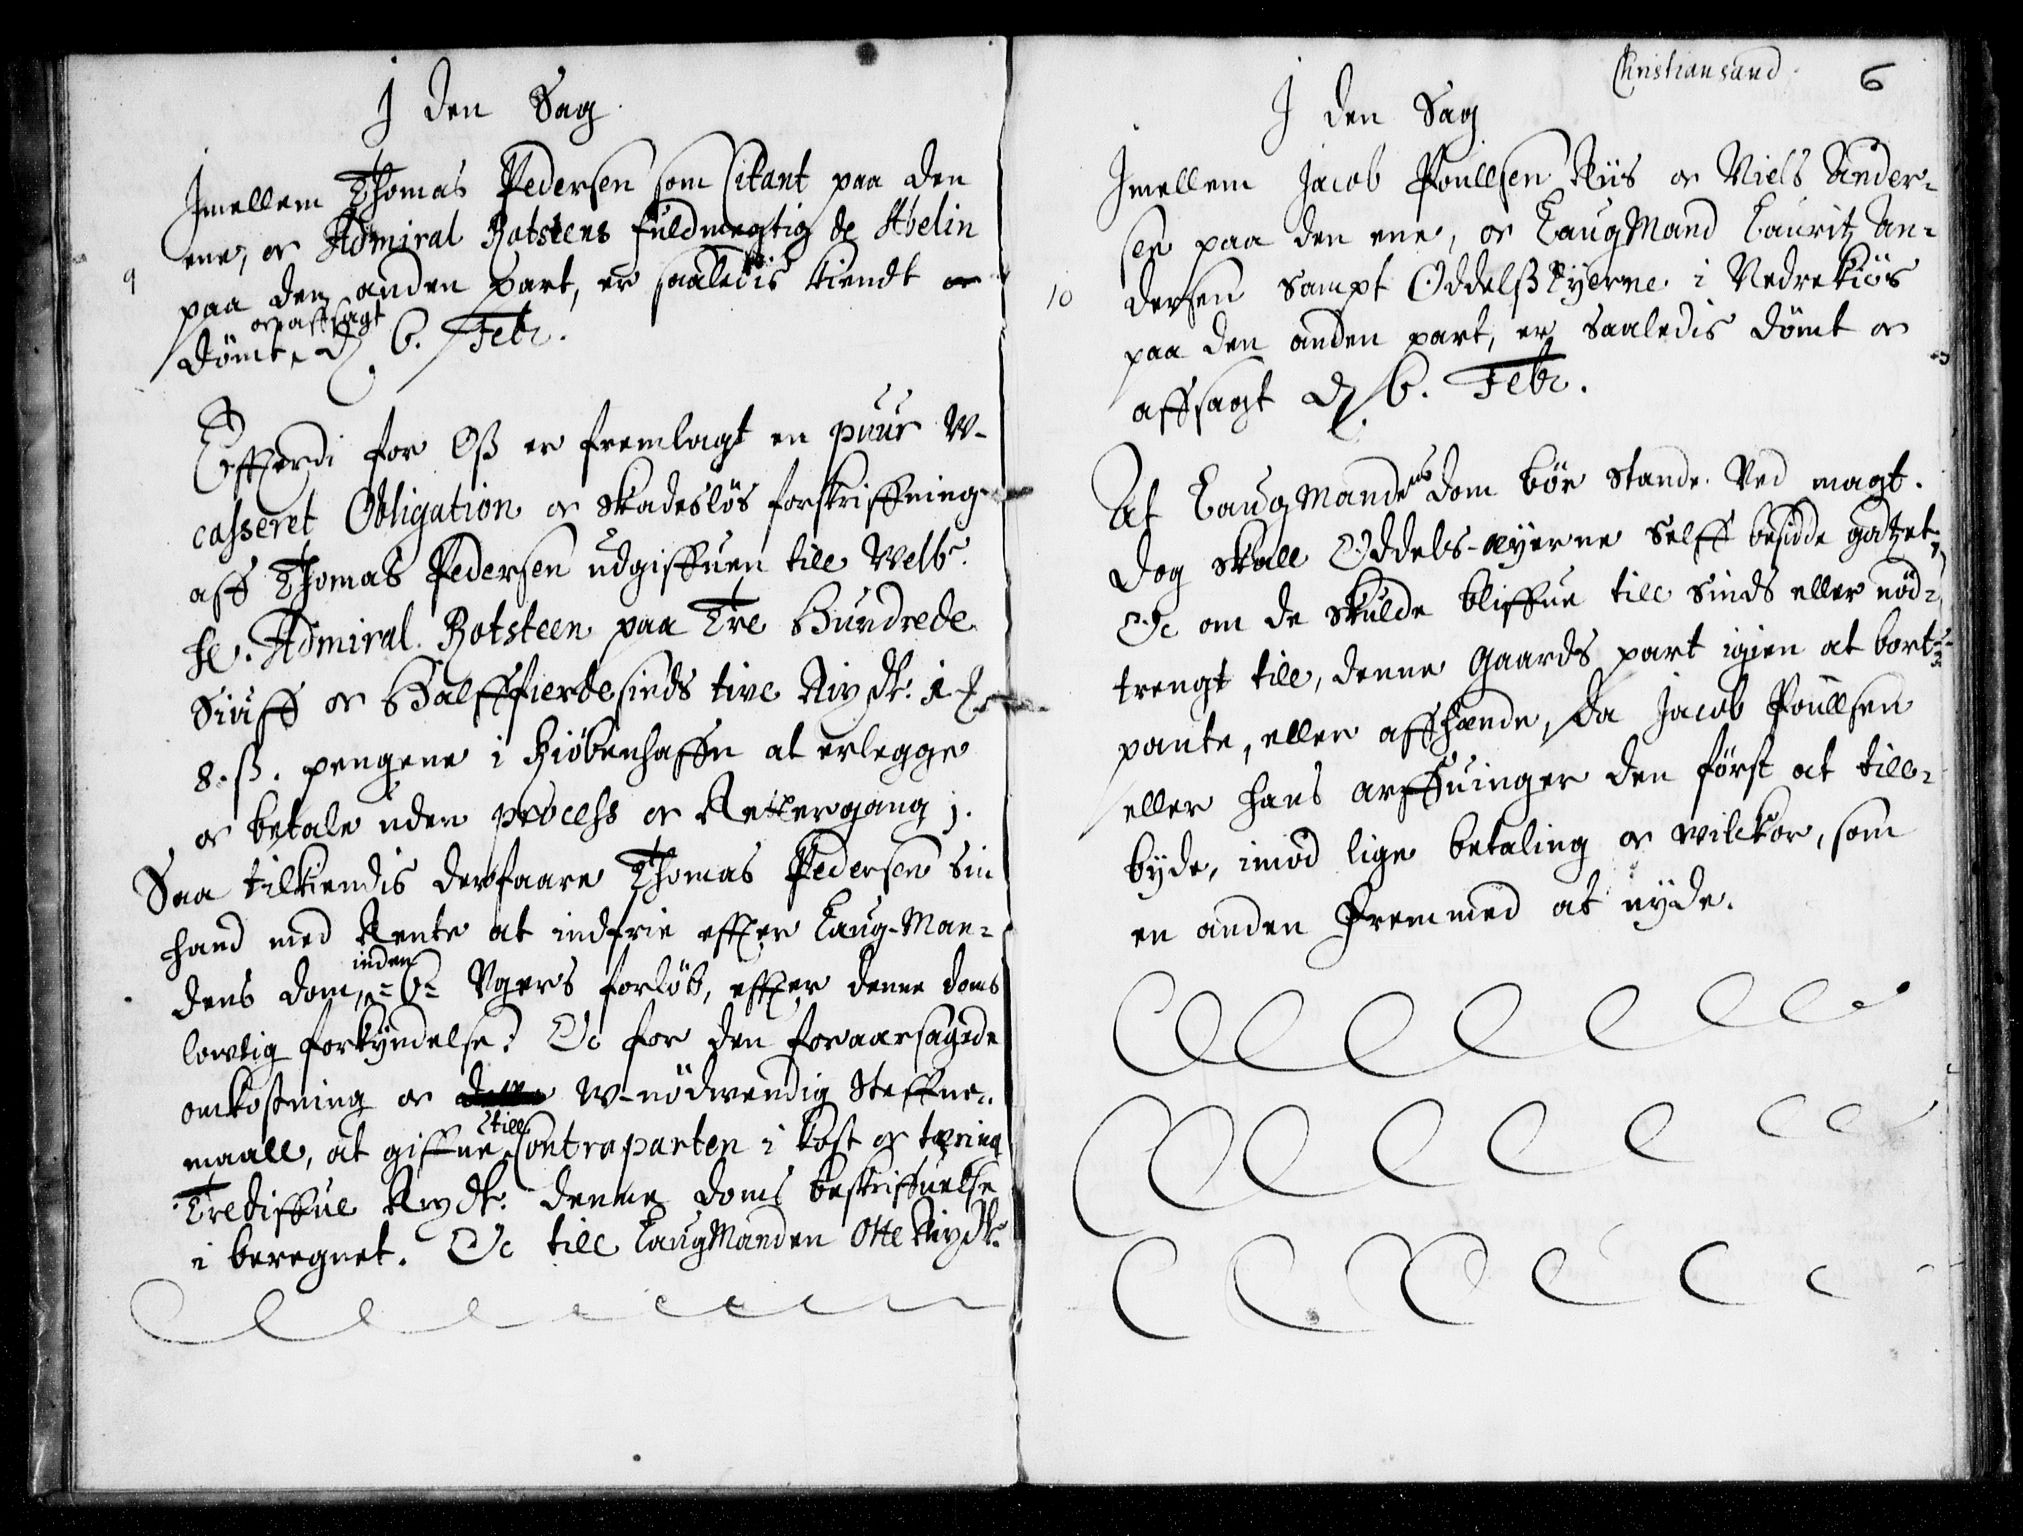 J den Sag
Jmellem Thomas Pedersen som Citant paa den
ene, oc Admiral Rotsteens fuldmegtig de Abelin
9
paa den anden part, er saaledis kiendt oc
oc affsagt
dømt, d. 6. Febr.
Effterdi for Oß er fremlagt en puur w-
casseret Obligation oc skadesløs forskriffning
aff Thomas Pedersen udgiffuen till Welb.
Hr. Admiral Rotsteen paa Tre Hundrede
Siuff oc Halfffierdesinds tive Rixdlr.
8. ß. pengene i Kiøbenhaffn at erlegge
oc betale uden process oc Rettergang
Saa tilkiendis derfaare Thomas Pedersen sin
haand med Rente at indfrie effter Laug-Man-
inden
dens dom, -6- Vgers forløb, effter denne doms
lowlig forkyndelse: Oc for den foraarsagede
omkostning oc w-nødwendig Steffne-
till
maall, at giffue Contraparten i kost oc tæring
Trediffue Rixdlr. denne doms beskriffuelse
i beregnet. Oc till LaugManden Otte Rixdlr.
Christiansand
6
J den Sag
Jmellem Jacob Poullsen Riis oc Niels Ander-
sen paa den ene, oc LaugMand Lauritz An-
10
dersen sampt Oddelß Eyerne i Nedrekiøs
paa den anden part, er saaledis dømt oc
affsagt d. 6. Febr.
At LaugMandens dom bør stande ved magt.
Dog skall Oddels-æyerne selff besidde godzet,
Oc om de skulde bliffue till sinds eller nød-
trengt till, denne gaards part igien at bort-
pante, eller affhænde, da Jacob Poullsen
eller hans arffuinger den først at till-
byde, imod lige betaling oc wilckor, som
en anden fremmed at nyde.